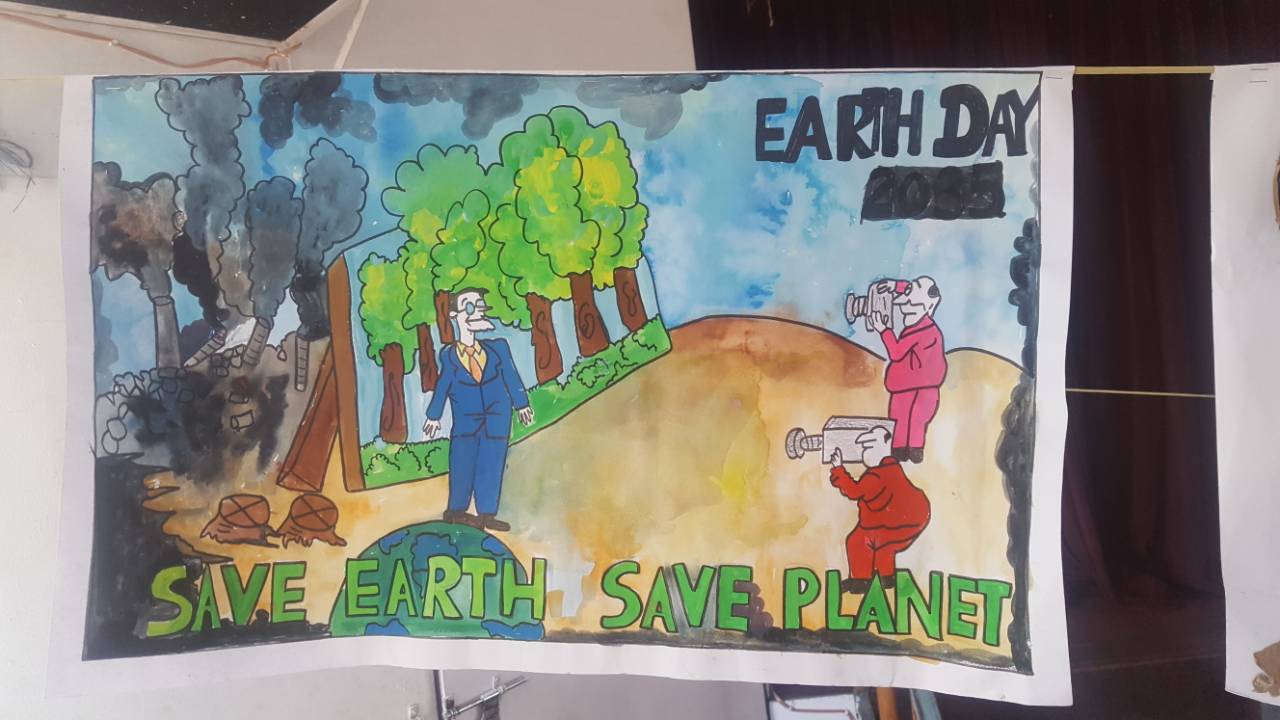 EARTH DAY
SAVE EARTH SAVE PLANET